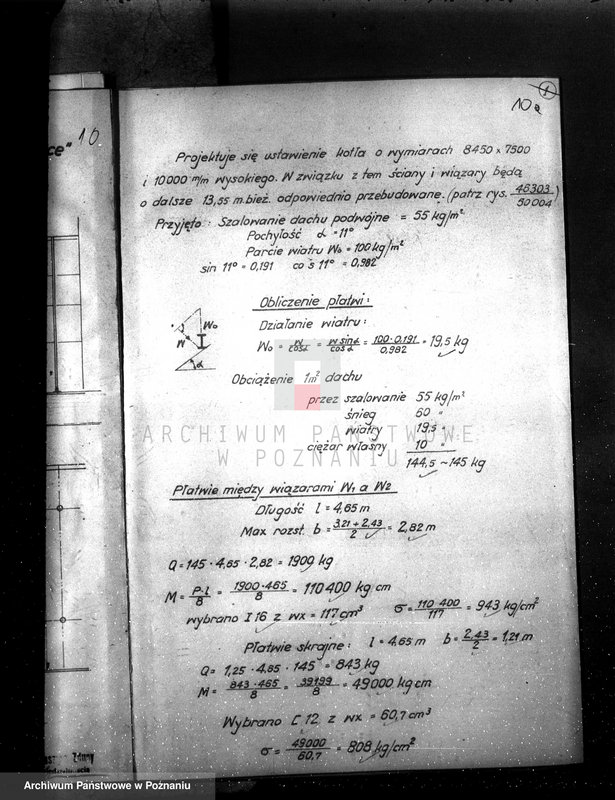 ce" 10
1
10a
Projektuje się ustawienie kotła o wymiarach 8450 x 7500
i 10000 m/m wysokiego. W związku z tem ściany i wiązary będą
o dalsze 13,55 m.bież. odpowiednio przebudowane. (patrz rys. 46303/50004)
Przyjęto: Szalowanie dachu podwójne = 55 kg/m²
Pochyłość α = 11°
Parcie wiatru W₀ = 100 kg/m²
sin 11° = 0,191 cos 11° = 0,982
Obliczenie płatwi:
Działanie wiatru:
W₀ = W/cosα = W sinα/cosα = 100·0,191/0,982 = 19,5 kg
W₀
W
α
Obciążenie 1m² dachu
przez szalowanie 55 kg/m²
śnieg 60 "
wiatry 19,5 "
ciężar własny 10 "
144,5 ~ 145 kg
ARCHIWUM PAŃSTWOWE
W POZNANIU
Płatwie między wiązarami W₁ a W₂
Długość l = 4,65 m
Max rozst. b = 3,21 + 2,43/2 = 2,82 m
Q = 145 · 4,65 · 2,82 = 1900 kg
M = P·l/8 = 1900·465/8 = 110400 kg cm
wybrano I 16 z wx = 117 cm³ σ = 110 400/117 = 943 kg/cm²
Płatwie skrajne: l = 4,65 m b = 2,43/2 = 1,21 m
Q = 1,25 · 4,65 · 145 = 843 kg
M = 843·465/8 = 39199/8 = 49000 kg cm
Wybrano C 12 z wx = 60,7 cm³
σ = 49000/60,7 = 808 kg/cm²
Zduny
Archiwum Państwowe w Poznaniu